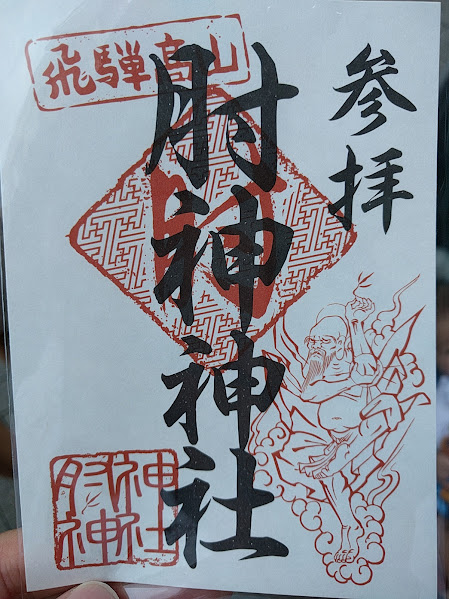 飛騨高山
参拝
肘神神社
肘神
神社